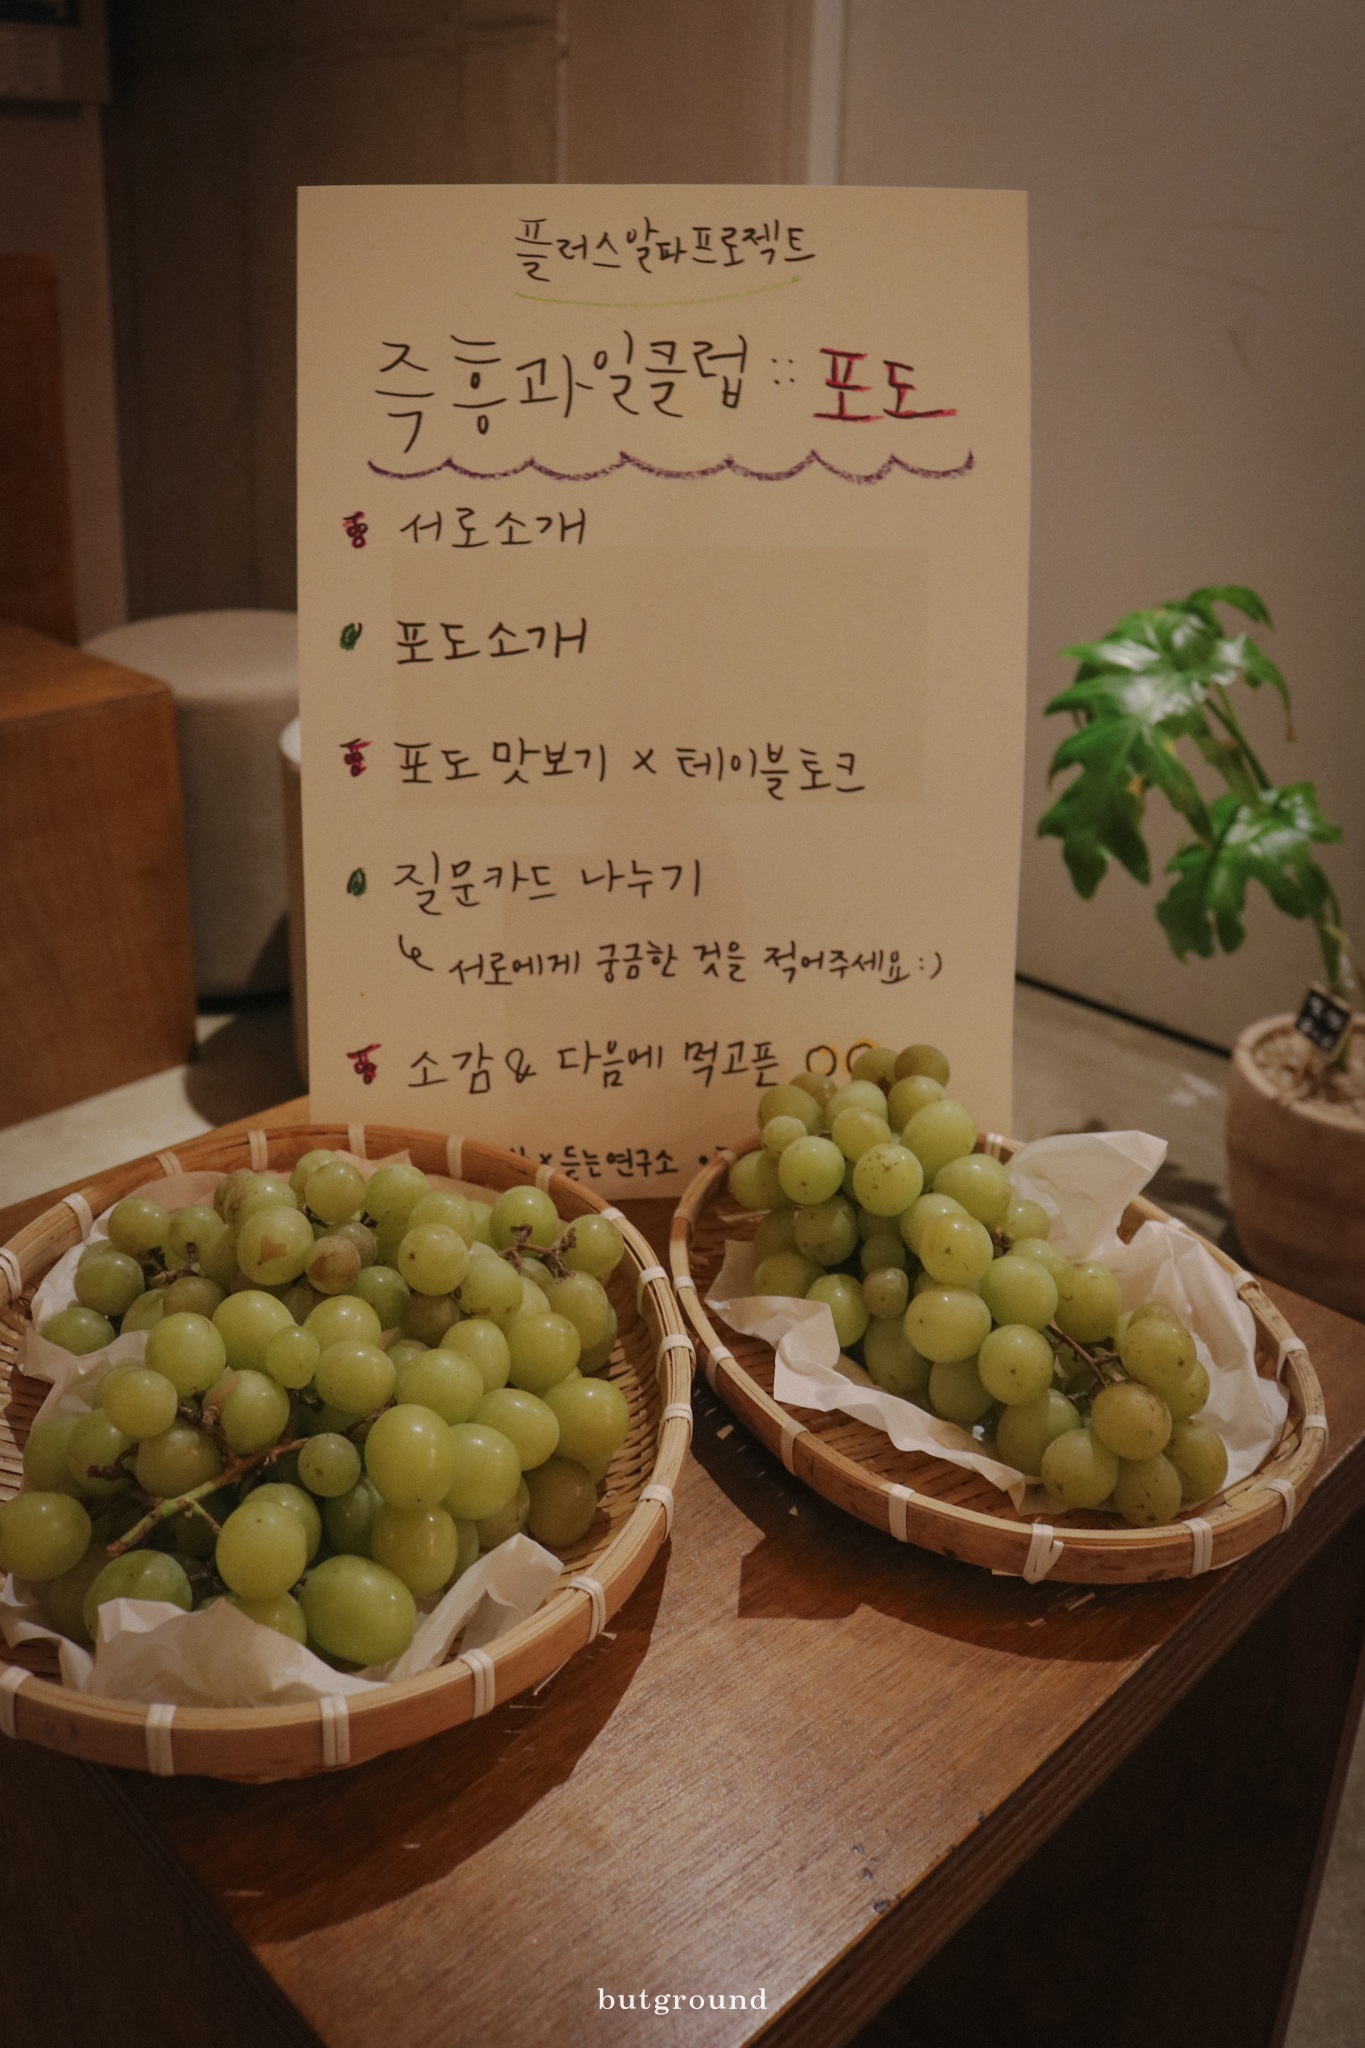 플러스알파프로젝트
즉흥과일클럽 :: 포도
서로소개
포도소개
포도 맛보기 x 테이블토크
질문카드 나누기
서로에게 궁금한 것을 적어주세요 :)
소감 & 다음에 먹고픈 OO
x 듣는연구소
butground